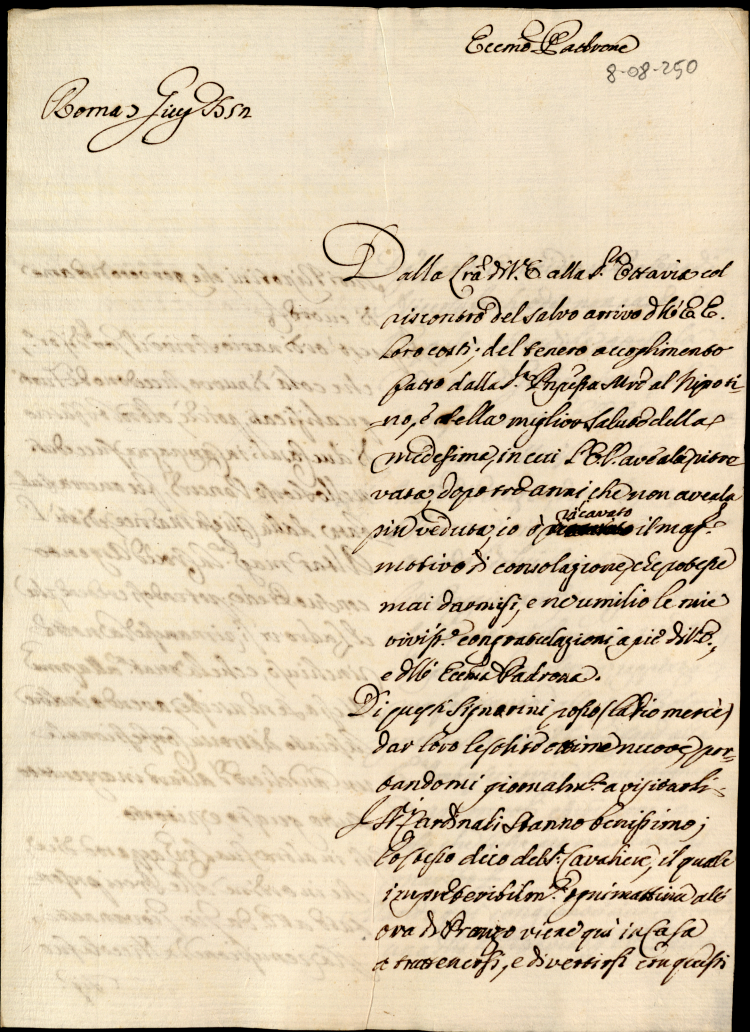 Eccmo Padrone
8-08-250
Roma 3 Giug 1752
Dalla Lrã di V.E. alla Sra. Ottavia col
riscontro del salvo arrivo dll' EE.
loro costì; del tenero accoglimento
fatto dalla Sra. Ppessa Mrẽ al Nipoti-
no, e della miglior salute della
medesima, in cui l'E.V. aveala ritro
vata, dopo tre anni, che non aveala
più veduta, io ò ricavato il magr.
motivo di consolazione, che potesse
mai darmisi, e ne umilio le mie
vivisse. congratulazioni a piè di V.E.,
e dlla Eccma Padrona.
Di questi Signorini posso (la Dio mercè)
dar loro le solite ottime nuove, por-
tandomi giornalmte. a visitarli.
I Sri. Cardinali stanno benissimo;
lo stesso dico del Sr. Cavaliere, il quale
impreteribilmte. ogni mattina all'
ora di Pranzo viene quì in Casa
a trattenersi, e divertirsi con questi